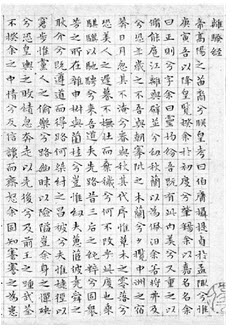 離騷經
帝高陽之苗裔兮朕皇考曰伯庸攝提貞於孟陬兮惟
庚寅吾以降皇覽揆余於初度兮肇錫余以嘉名名余
曰正則兮字余曰靈均紛吾既有此內美兮又重之以
脩能扈江離與辟芷兮紉秋蘭以為佩汩余若將弗及
兮恐年歲之不吾與朝搴阰之木蘭兮夕攬中洲之宿
莽日月忽其不淹兮春與秋其代序惟草木之零落兮
恐美人之遲暮不撫壯而棄穢兮何不改乎此度也乘
騏驥以馳騁兮來吾道夫先路昔三后之純粹兮固眾
芳之所在雜申椒與菌桂兮豈維紉夫蕙茝彼堯舜之
耿介兮既遵道而得路何桀紂之昌披兮夫唯捷徑以
窘步惟黨人之偷樂兮路幽昧以險隘豈余身之憚殃
兮恐皇輿之敗績忽奔走以先後兮及前王之踵武荃
不揆余之中情兮反信讒而齌怒余固知謇謇之為患